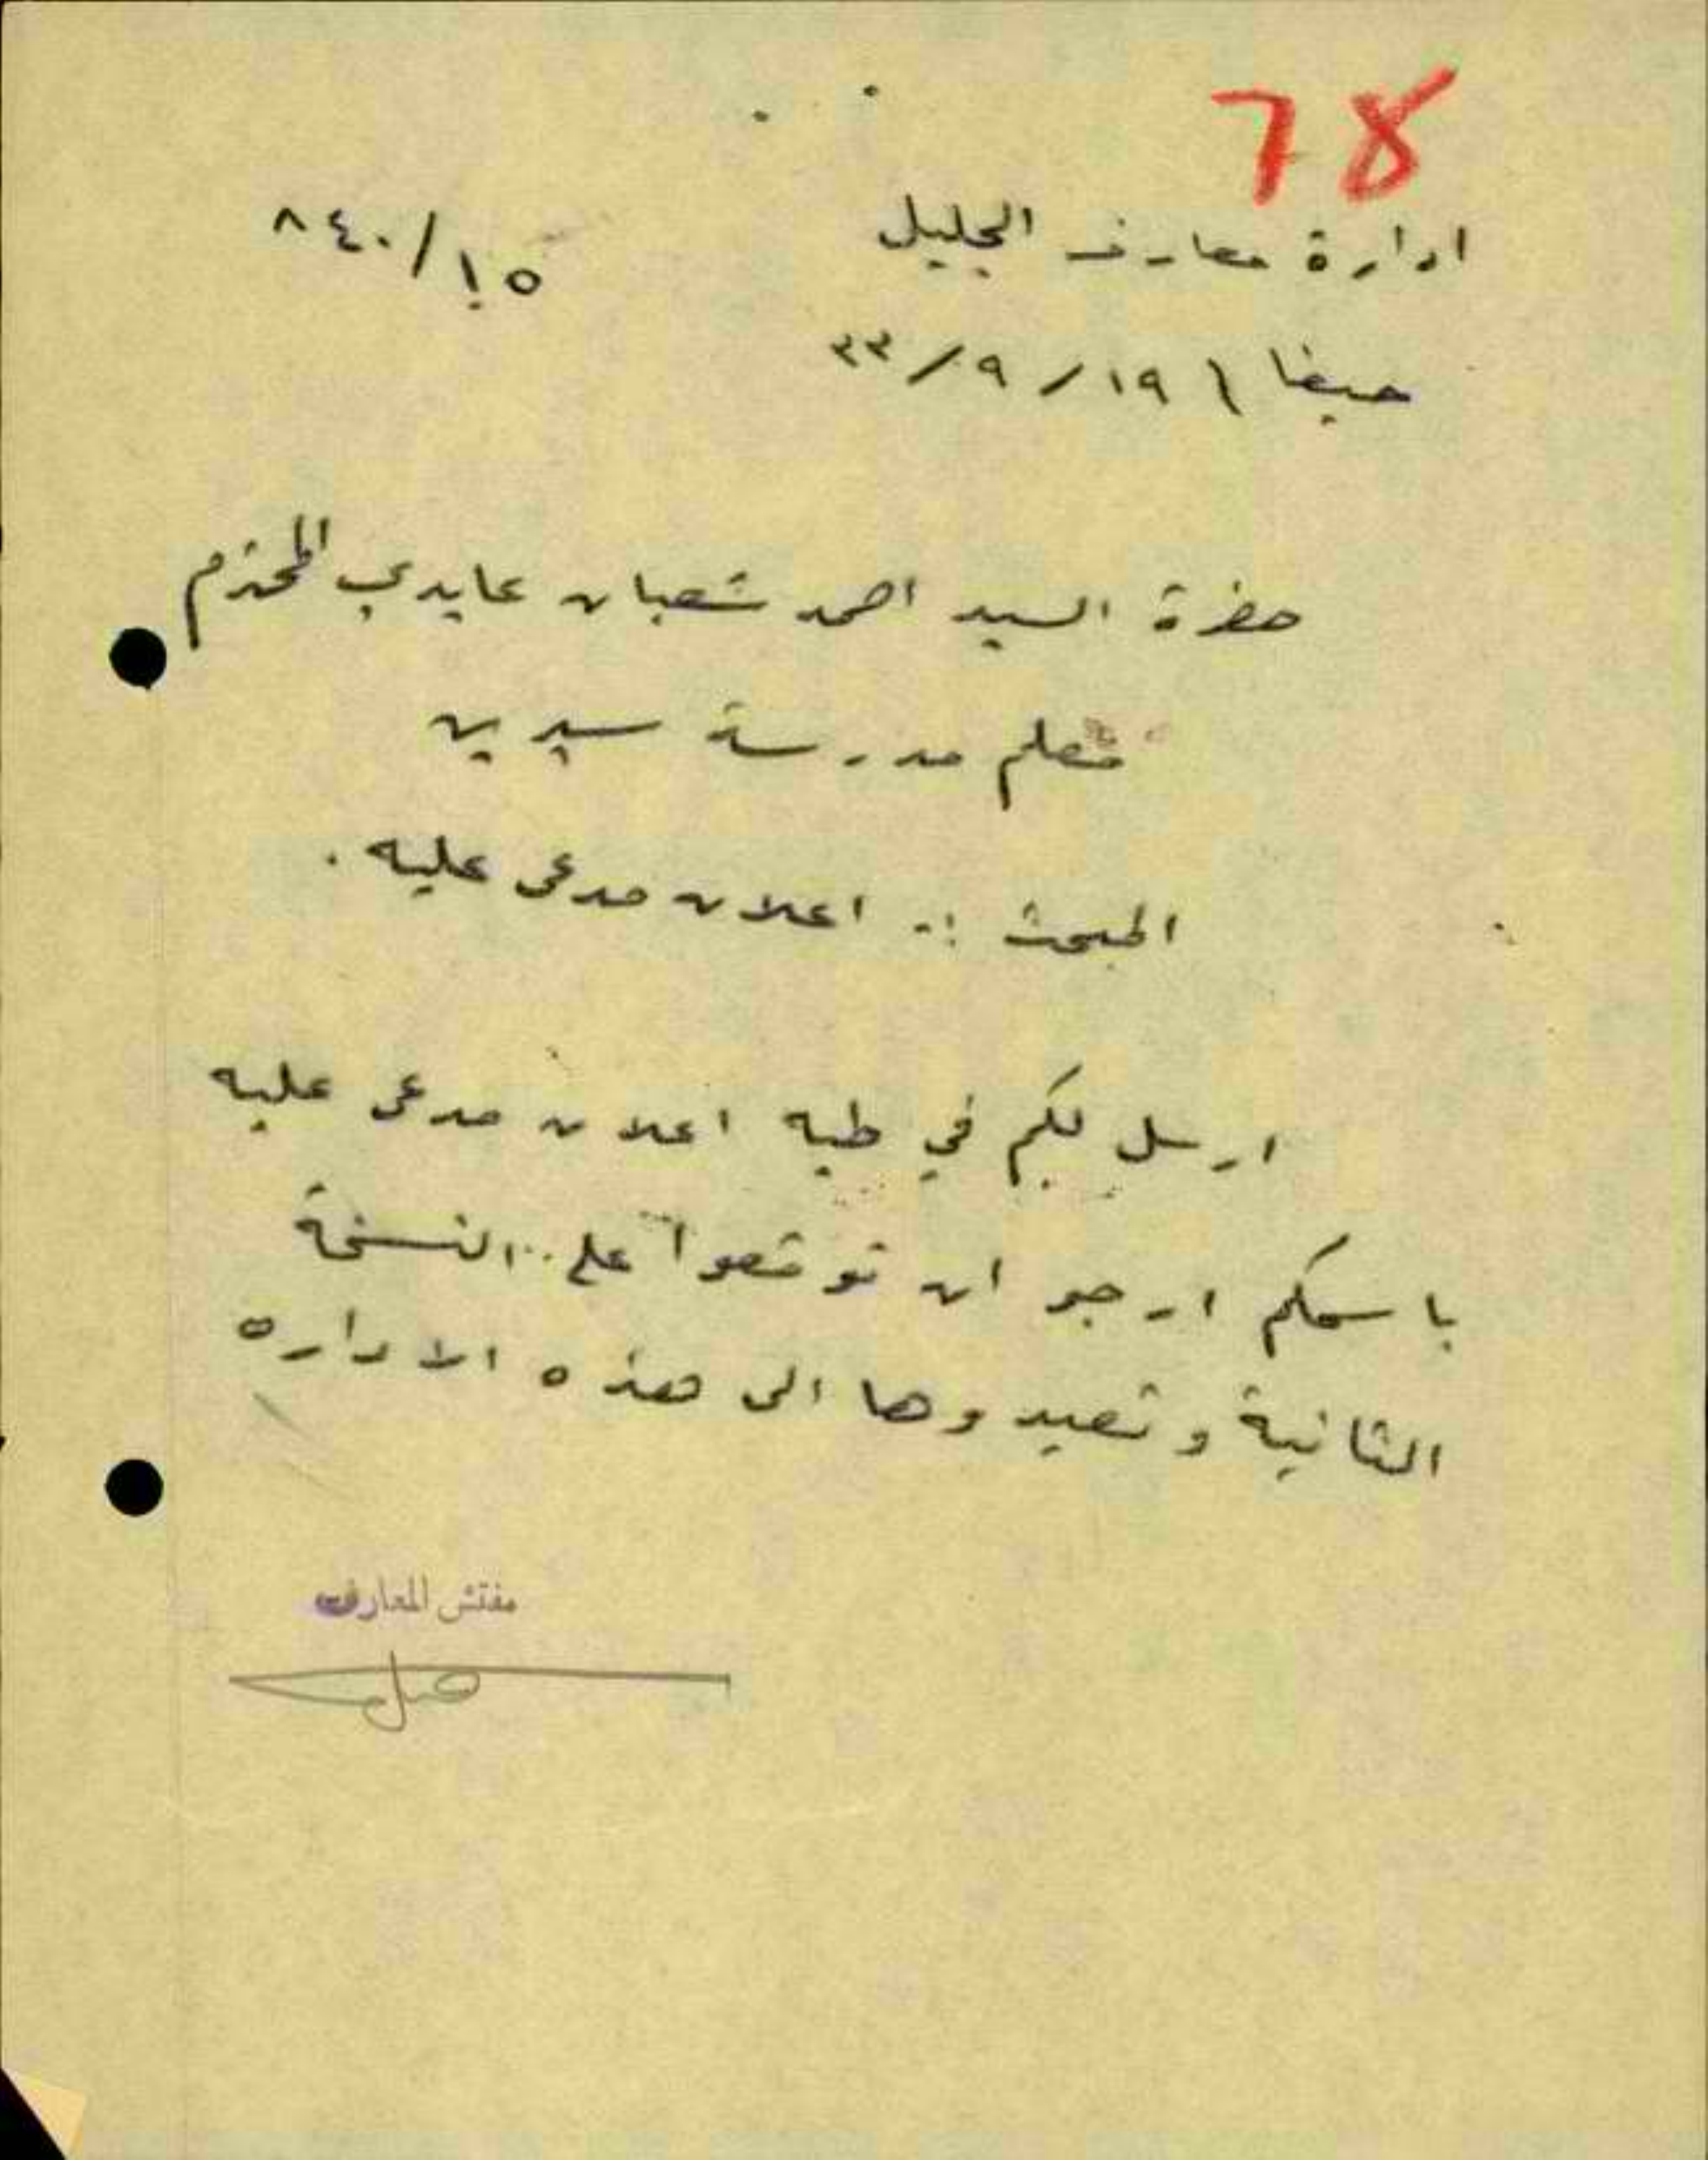 78
ادارة معارف الجليل
٨٤٠/١٥
حيفا \ ١٩/٩/٣٣
حضرة السيد احمد شعبان عايدي المحترم
معلم مدرسة سيرين
المبحث :. اعلان مدعى عليه .
ارسل لكم في طيه اعلان مدعى عليه
باسمكم ارجو ان توقعوا على النسخة
الثانية وتعيدوها الى هذه الاداره
مفتش المعارف